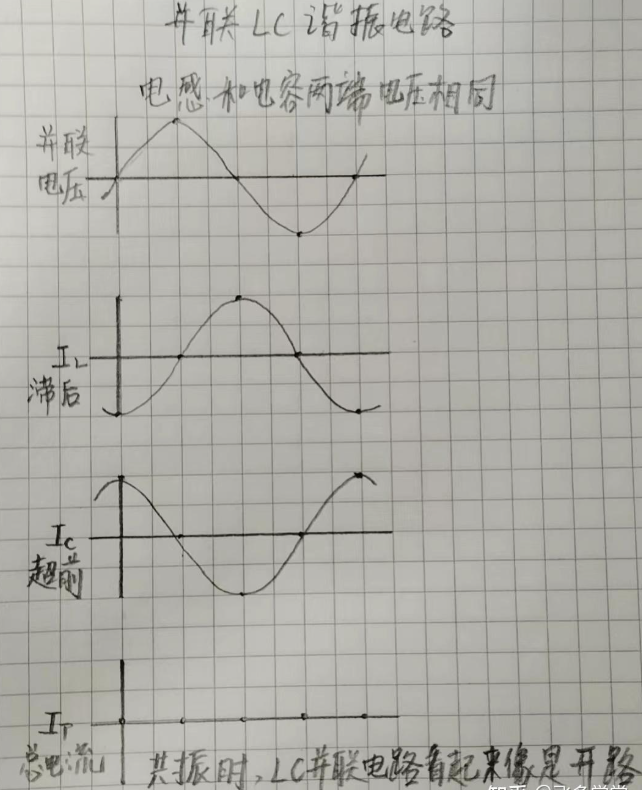 并联LC谐振电路
电感和电容两端电压相同
并联
电压
IL
滞后
IC
超前
IT
总电流
共振时,LC并联电路看起来像是开路